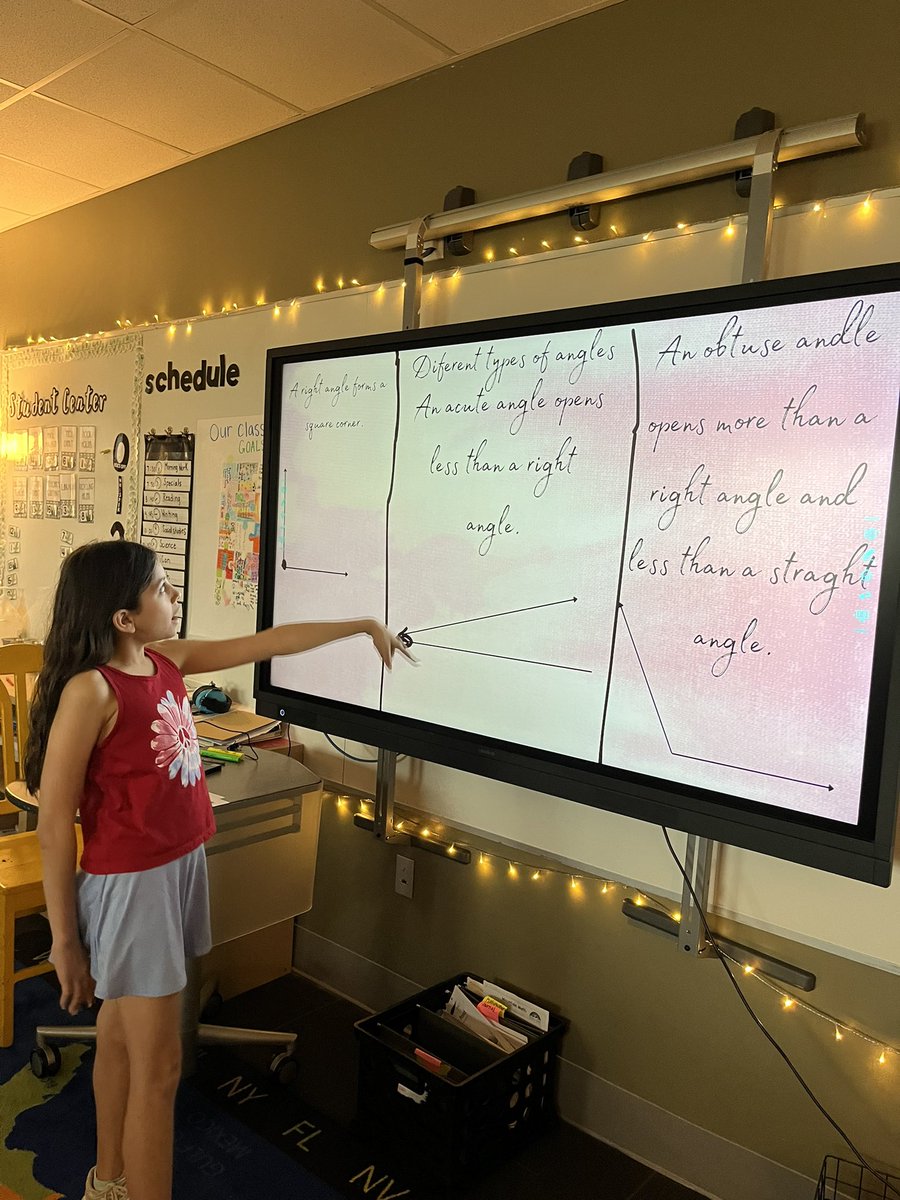 Student Center
schedule
Our Class
GOALS
Morning work
Specials
Reading
Writing
Social studies
Science
A right angle forms a
square corner.
Diferent types of angles
An acute angle opens
less than a right
angle.
An obtuse andle
opens more than a
right angle and
less than a straght
angle.
NY
FL
NY
GULF
MEXICO